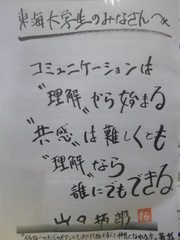 東海大学生のみなさんへ
コミュニケーションは
"理解"から始まる
"共感"は難しくとも
"理解"なら
誰にでもできる
山口拓朗